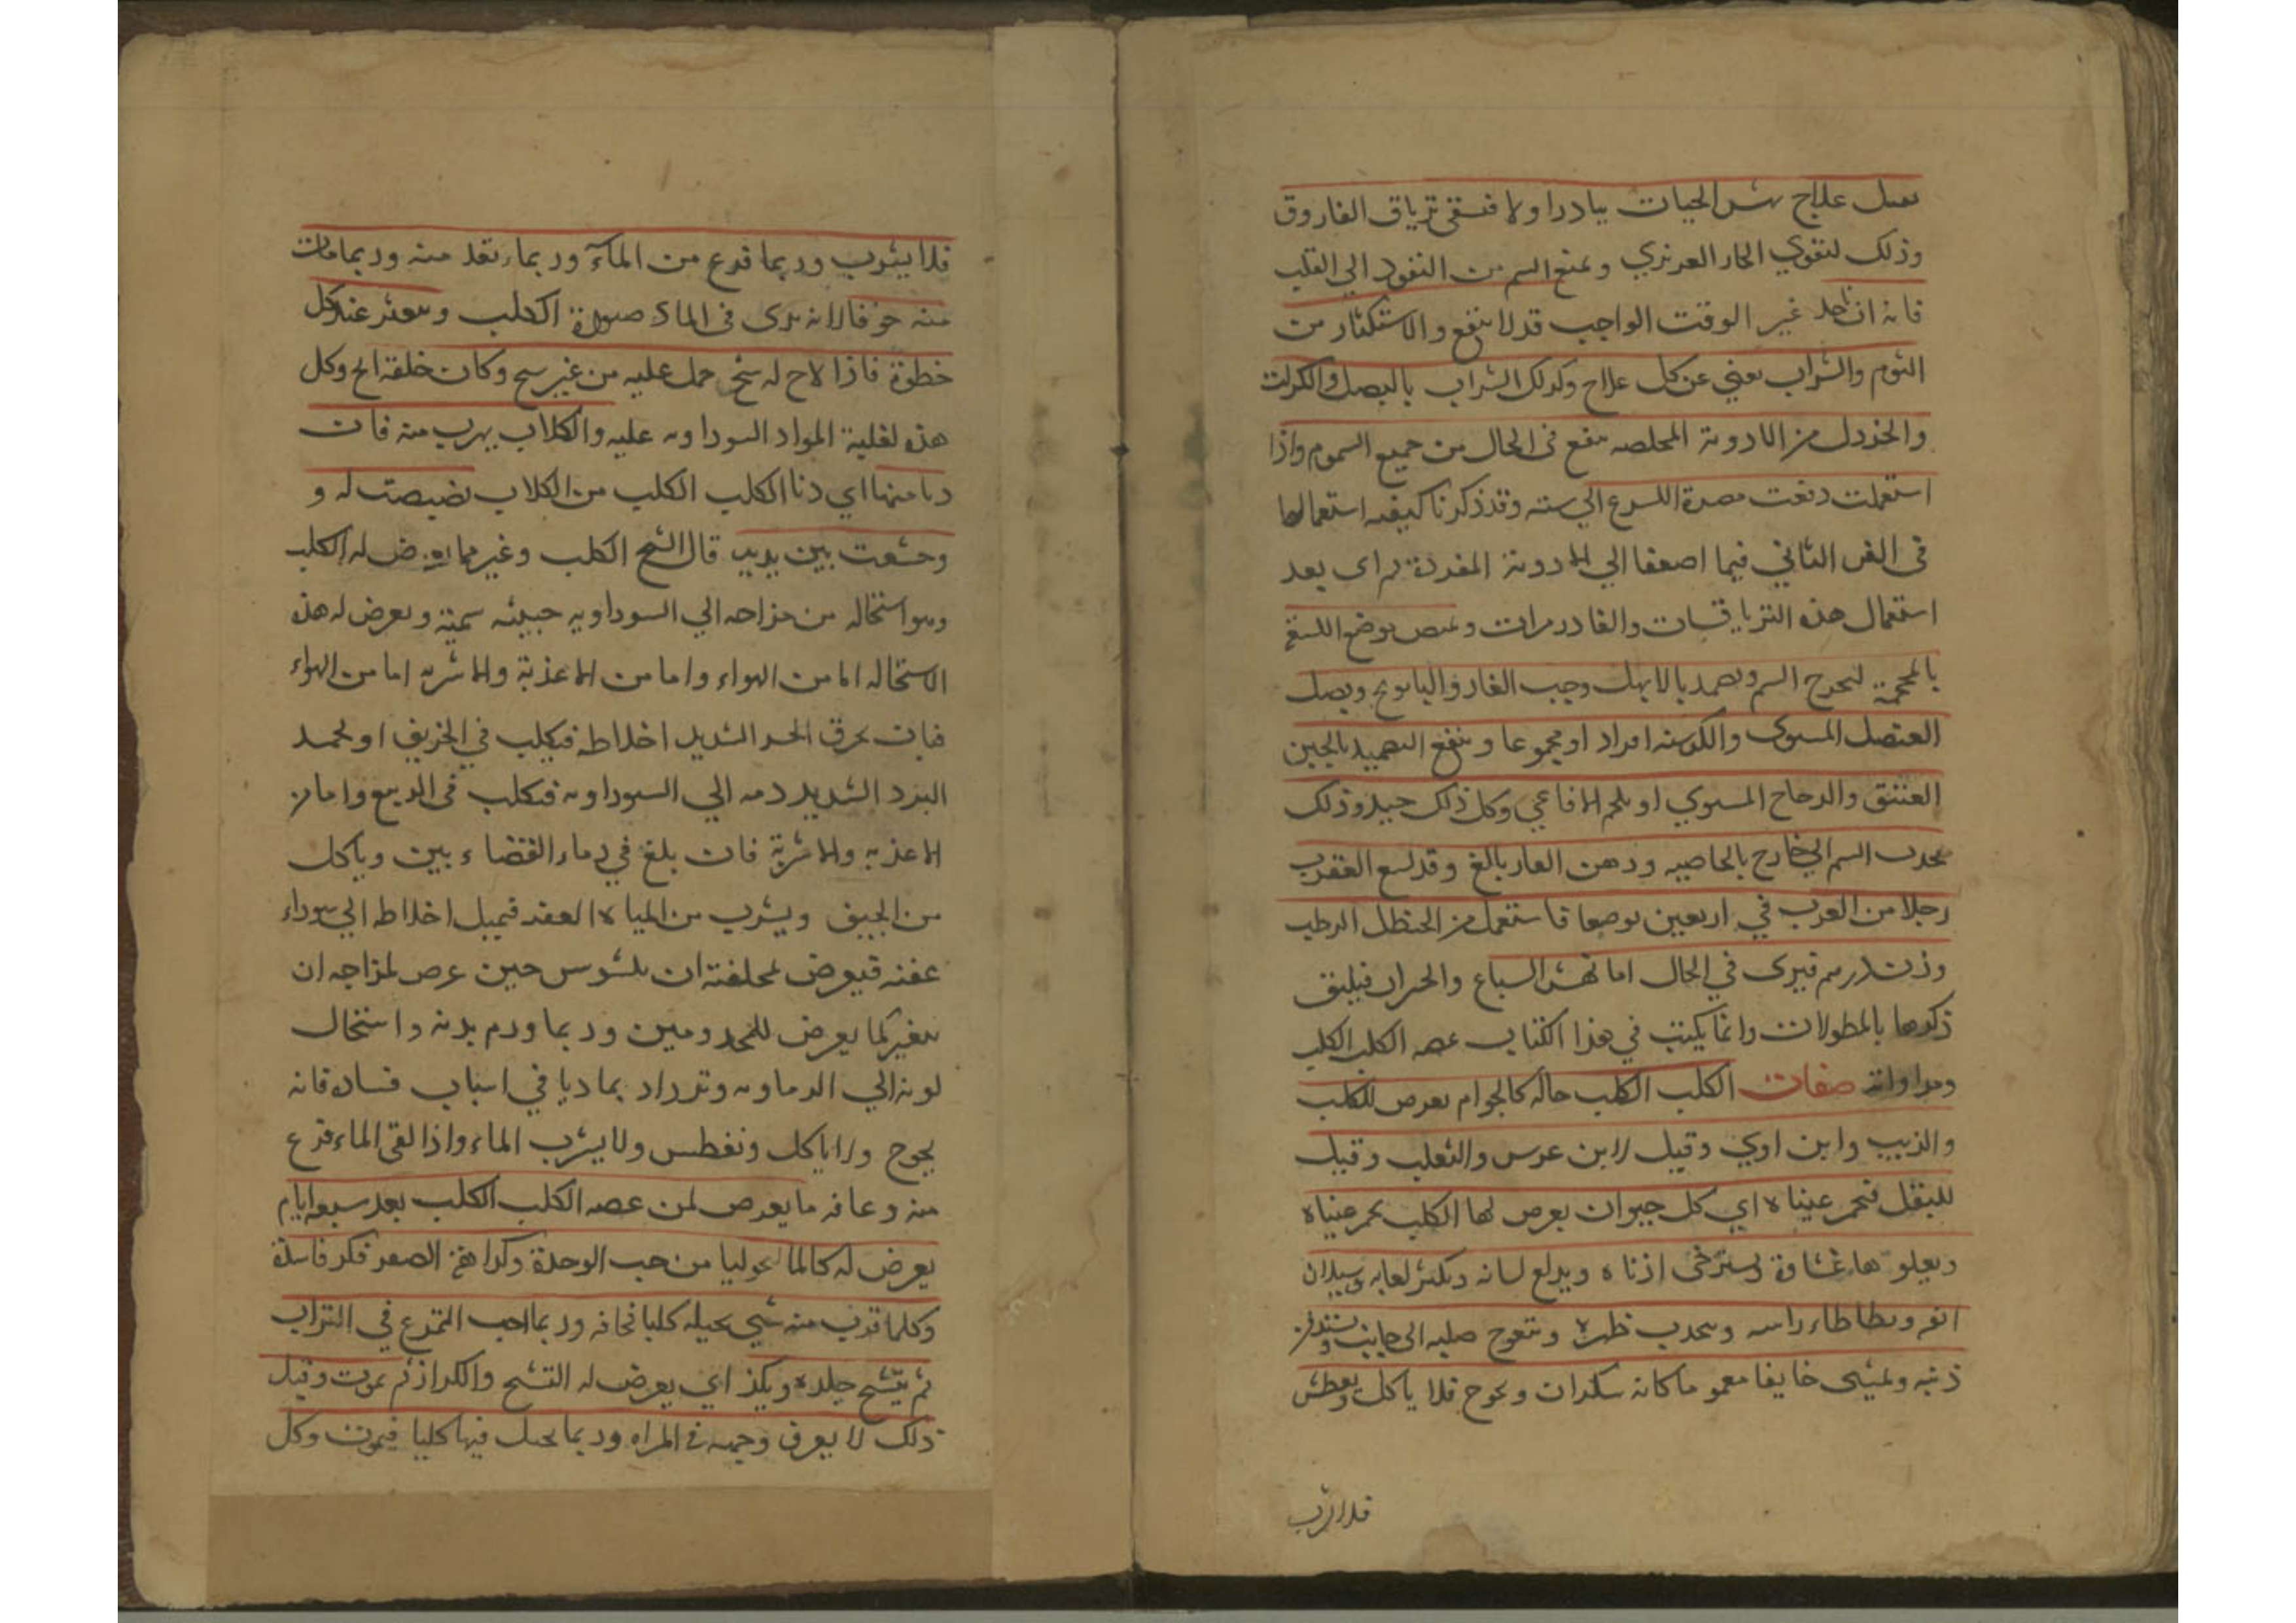 علاج نهش الحيات يبادر اولا فيسقى ترياق الفاروق
وذلك لتقوي الحار الغريزي ويمنع السم من النفود الي القلب
فانه ان اخد غير الوقت الواجب قد لا ينفع والاستكثار من
الثوم والشراب يغني عن كل علاج وكدلك الشراب بالبصل والكراث
والخردل من الادوية المخلصه ينفع في الحال من جميع السموم واذا
استعملت دفعت مضرة اللسع الي سنه وقد ذكرنا كيفيه استعمالها
في الفن الثاني فيما اضفنا الي الادوية المفردة اي بعد
استعمال هذه الترياقات والفادزهرات ويمص موضع اللسع
بالمحجمة ليخرج السم ويضمد بالابهل وحب الغار والبابونج وبصل
العنصل المشوي والكرسنه افراد او مجموعا وينفع التضميد بالجبن
العتيق والدجاج المشوي او بلحم الافاعي وكل ذلك جيد وذلك
يجدب السم الي خارج بالخاصيه ودهن الغار بالغ وقد لسع العقرب
رجلا من العرب في اربعين موضعا فاستعمل من الحنظل الرطب
وزن درهم فبرى في الحال اما نهش السباع والحيوان فيليق
ذكرها بالمطولات وانما يكتب في هذا الكتاب عضه الكلب الكلب
ومداواته صفات الكلب الكلب حاله كالجدام يعرض للكلب
والذيب وابن اوي وقيل لابن عرس والثعلب وقيل
للبغل فتحمر عيناه اي كل حيوان يعرض لها الكلب يحمر عيناه
ويعلوها غشاوة ويسترخى اذناه ويدلع لسانه ويكثر لعابه وسيلان
انفه ويطاطاء راسه ويحدب ظهره ويتعوج صلبه الى جانب
ذنبه ويمشي خايفا مغموما كانه سكران ويجوع فلا ياكل ويعطش
فلا يشرب
فلا يشرب وربما فزع من المآء وربما ارتعد منه وربما مات
منه خوفا لانه يرى في الماء صورة الكلب ويتعثر عند كل
خطوة فاذا لاح له شبح حمل عليه من غير نبح وكان خلقه ابح وكل
هذه لغلبة المواد السوداويه عليه والكلاب يهرب منه فان
دنا منها اي دنا الكلب الكلب من الكلاب بصبصت له و
وخشعت بين يديه قال الشيخ الكلب وغيره مما يعرض له الكلب
وهو استحاله من مزاجه الي السوداويه خبيثه سمية ويعرض له هذه
الاستحاله اما من الهواء واما من الاغذية والاشربه اما من الهواء
فبان يحرق الحر الشديد اخلاطه فيكلب في الخريف او يجمد
البرد الشديد دمه الي السوداويه فيكلب في الربيع واما من
الاغذيه والاشربة فان بلغ في دماء القضابين وياكل
من الجيف ويشرب من المياه العفنه فيميل اخلاطه الي سوداء
عفنه فيعرض لخلقته ان يتشوش حين عرض لمزاجه ان
يتغير كما يعرض للمجدومين وربما ورم بدنه واستحال
لونه الي الرماديه وتزداد تماديا في اسباب فساده فانه
يجوع ولا ياكل ويعطش ولا يشرب الماء واذا لقى الماء فزع
منه وعافه ما يعرض لمن عضه الكلب الكلب بعد سبعه ايام
يعرض له كالماليخوليا من حب الوحدة وكراهة الضوء فكر فاسدة
وكلما قرب منه شيي يخيله كلبا فخافه وربما احب التمرغ في التراب
ثم يتشنج جلده ويكز اي يعرض له التشنج والكزاز ثم يموت وقبل
ذلك لا يعرف وجهه في المراه وربما يخيل فيها كلبا فيموت وكل